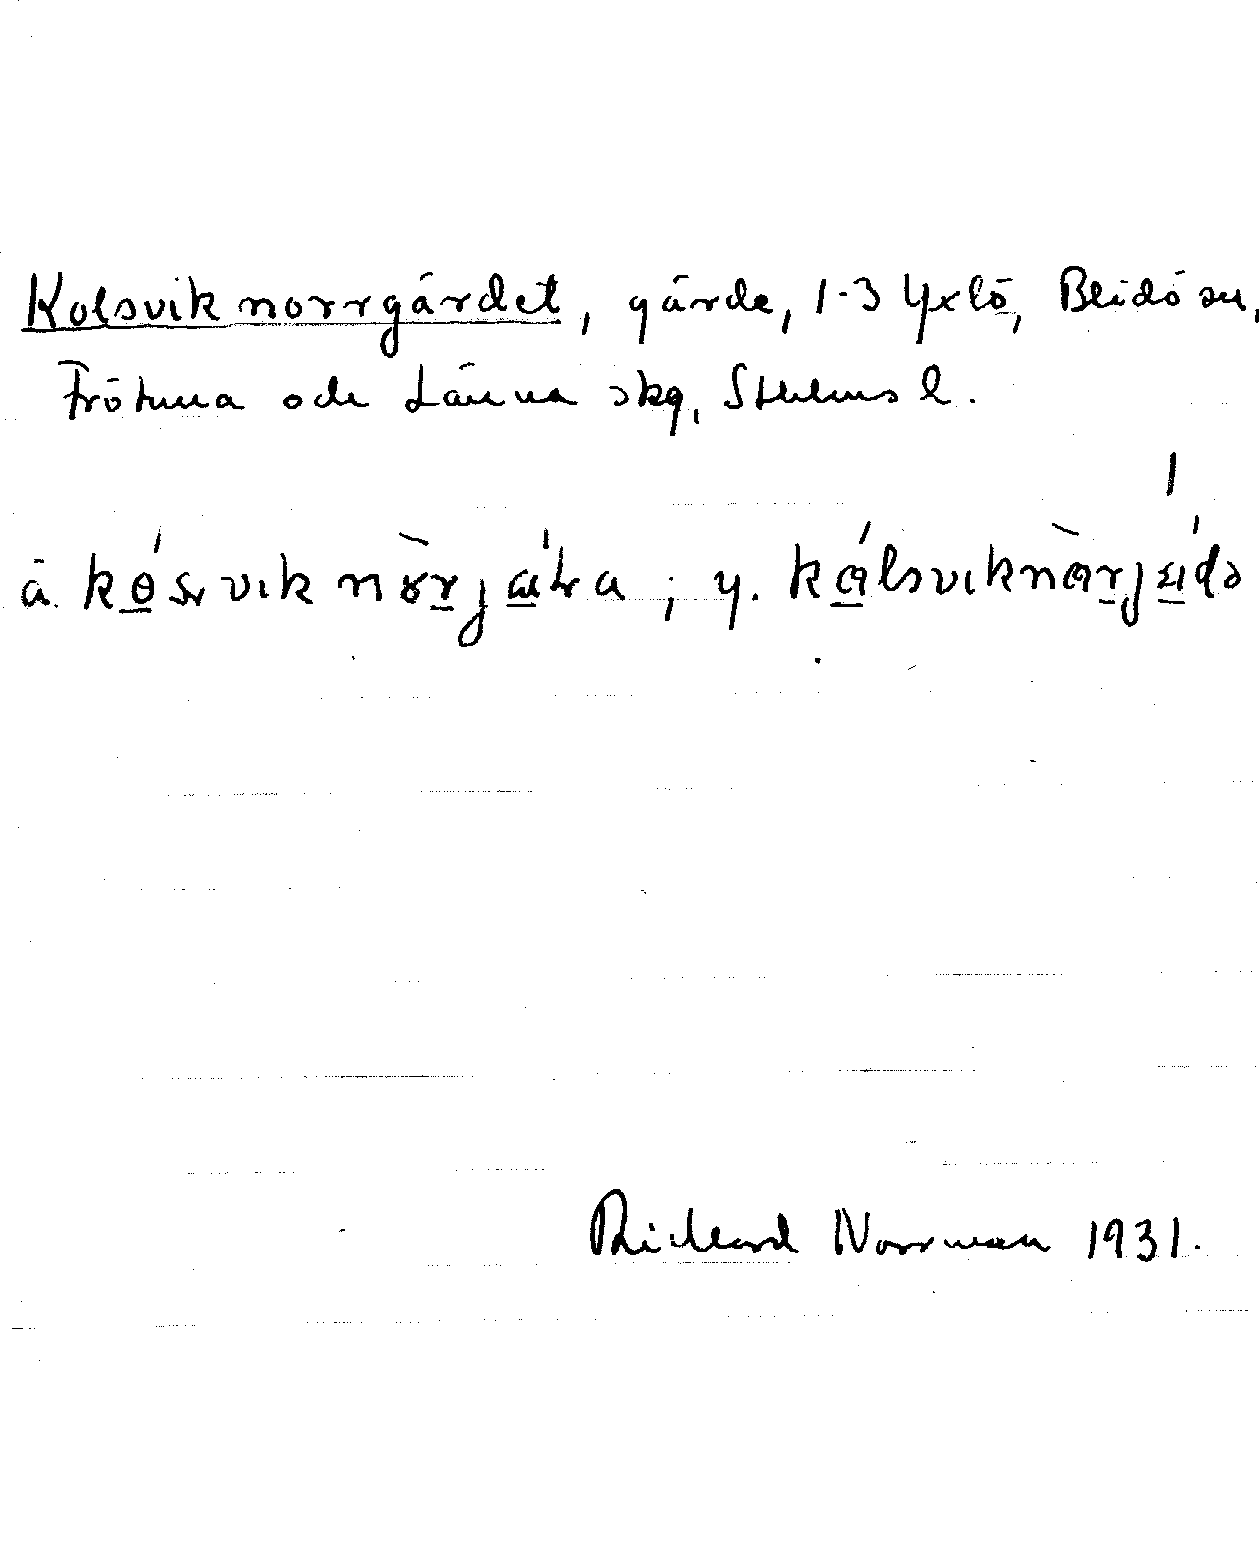 Kolsvik norrgärdet, gärde, 1-3 Yxlö, Blidö sn,
Frötuna och Länna skg, Sthlms l.
ä. kósvik nòrjä́ka; y. kålsviknòrjä́də
Rickard Norrman 1931.